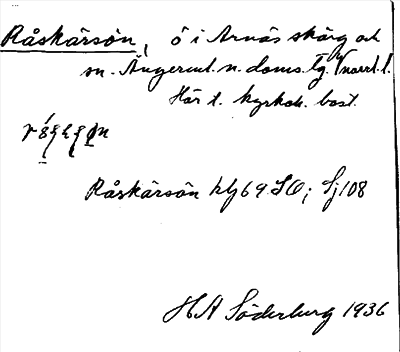 Råskärsön, ö i Arnäs skärg och
sn. Ångerml. n. doms. Tg. Vnorrl. l.
Här t. kyrkoh. bost.
Råskärsön hlj 69 SO; Sj 108
H A Söderberg 1936